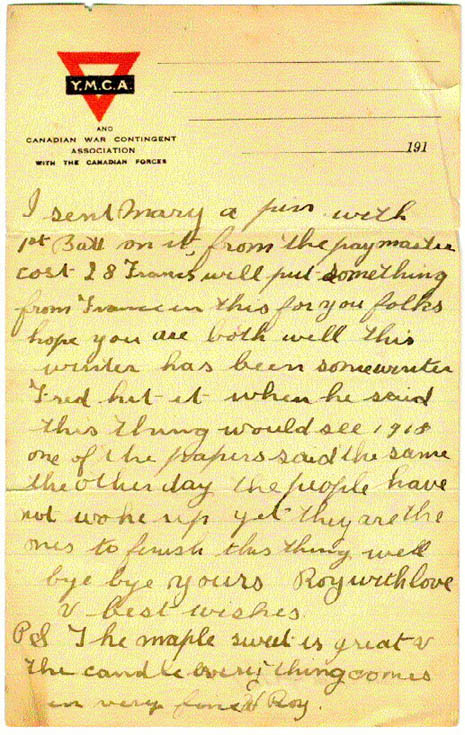 Y.M.C.A.
AND
CANADIAN WAR CONTINGENT
ASSOCIATION
WITH THE CANADIAN FORCES
191
I sent Mary a pin with
1st Batt on it, from the paymaster
cost 28 Francs will put something
from France in this for you folks
hope you are both well this
winter has been somewinter
Fred hit it when he said
this thing would see 1918
one of the papers said the same
the other day the people have
not woke up yet they are the
ones to finish this thing well
bye bye yours Roy with love
& best wishes
PS The maple sweet is great &
the candle every thing comes
in very fine Roy.